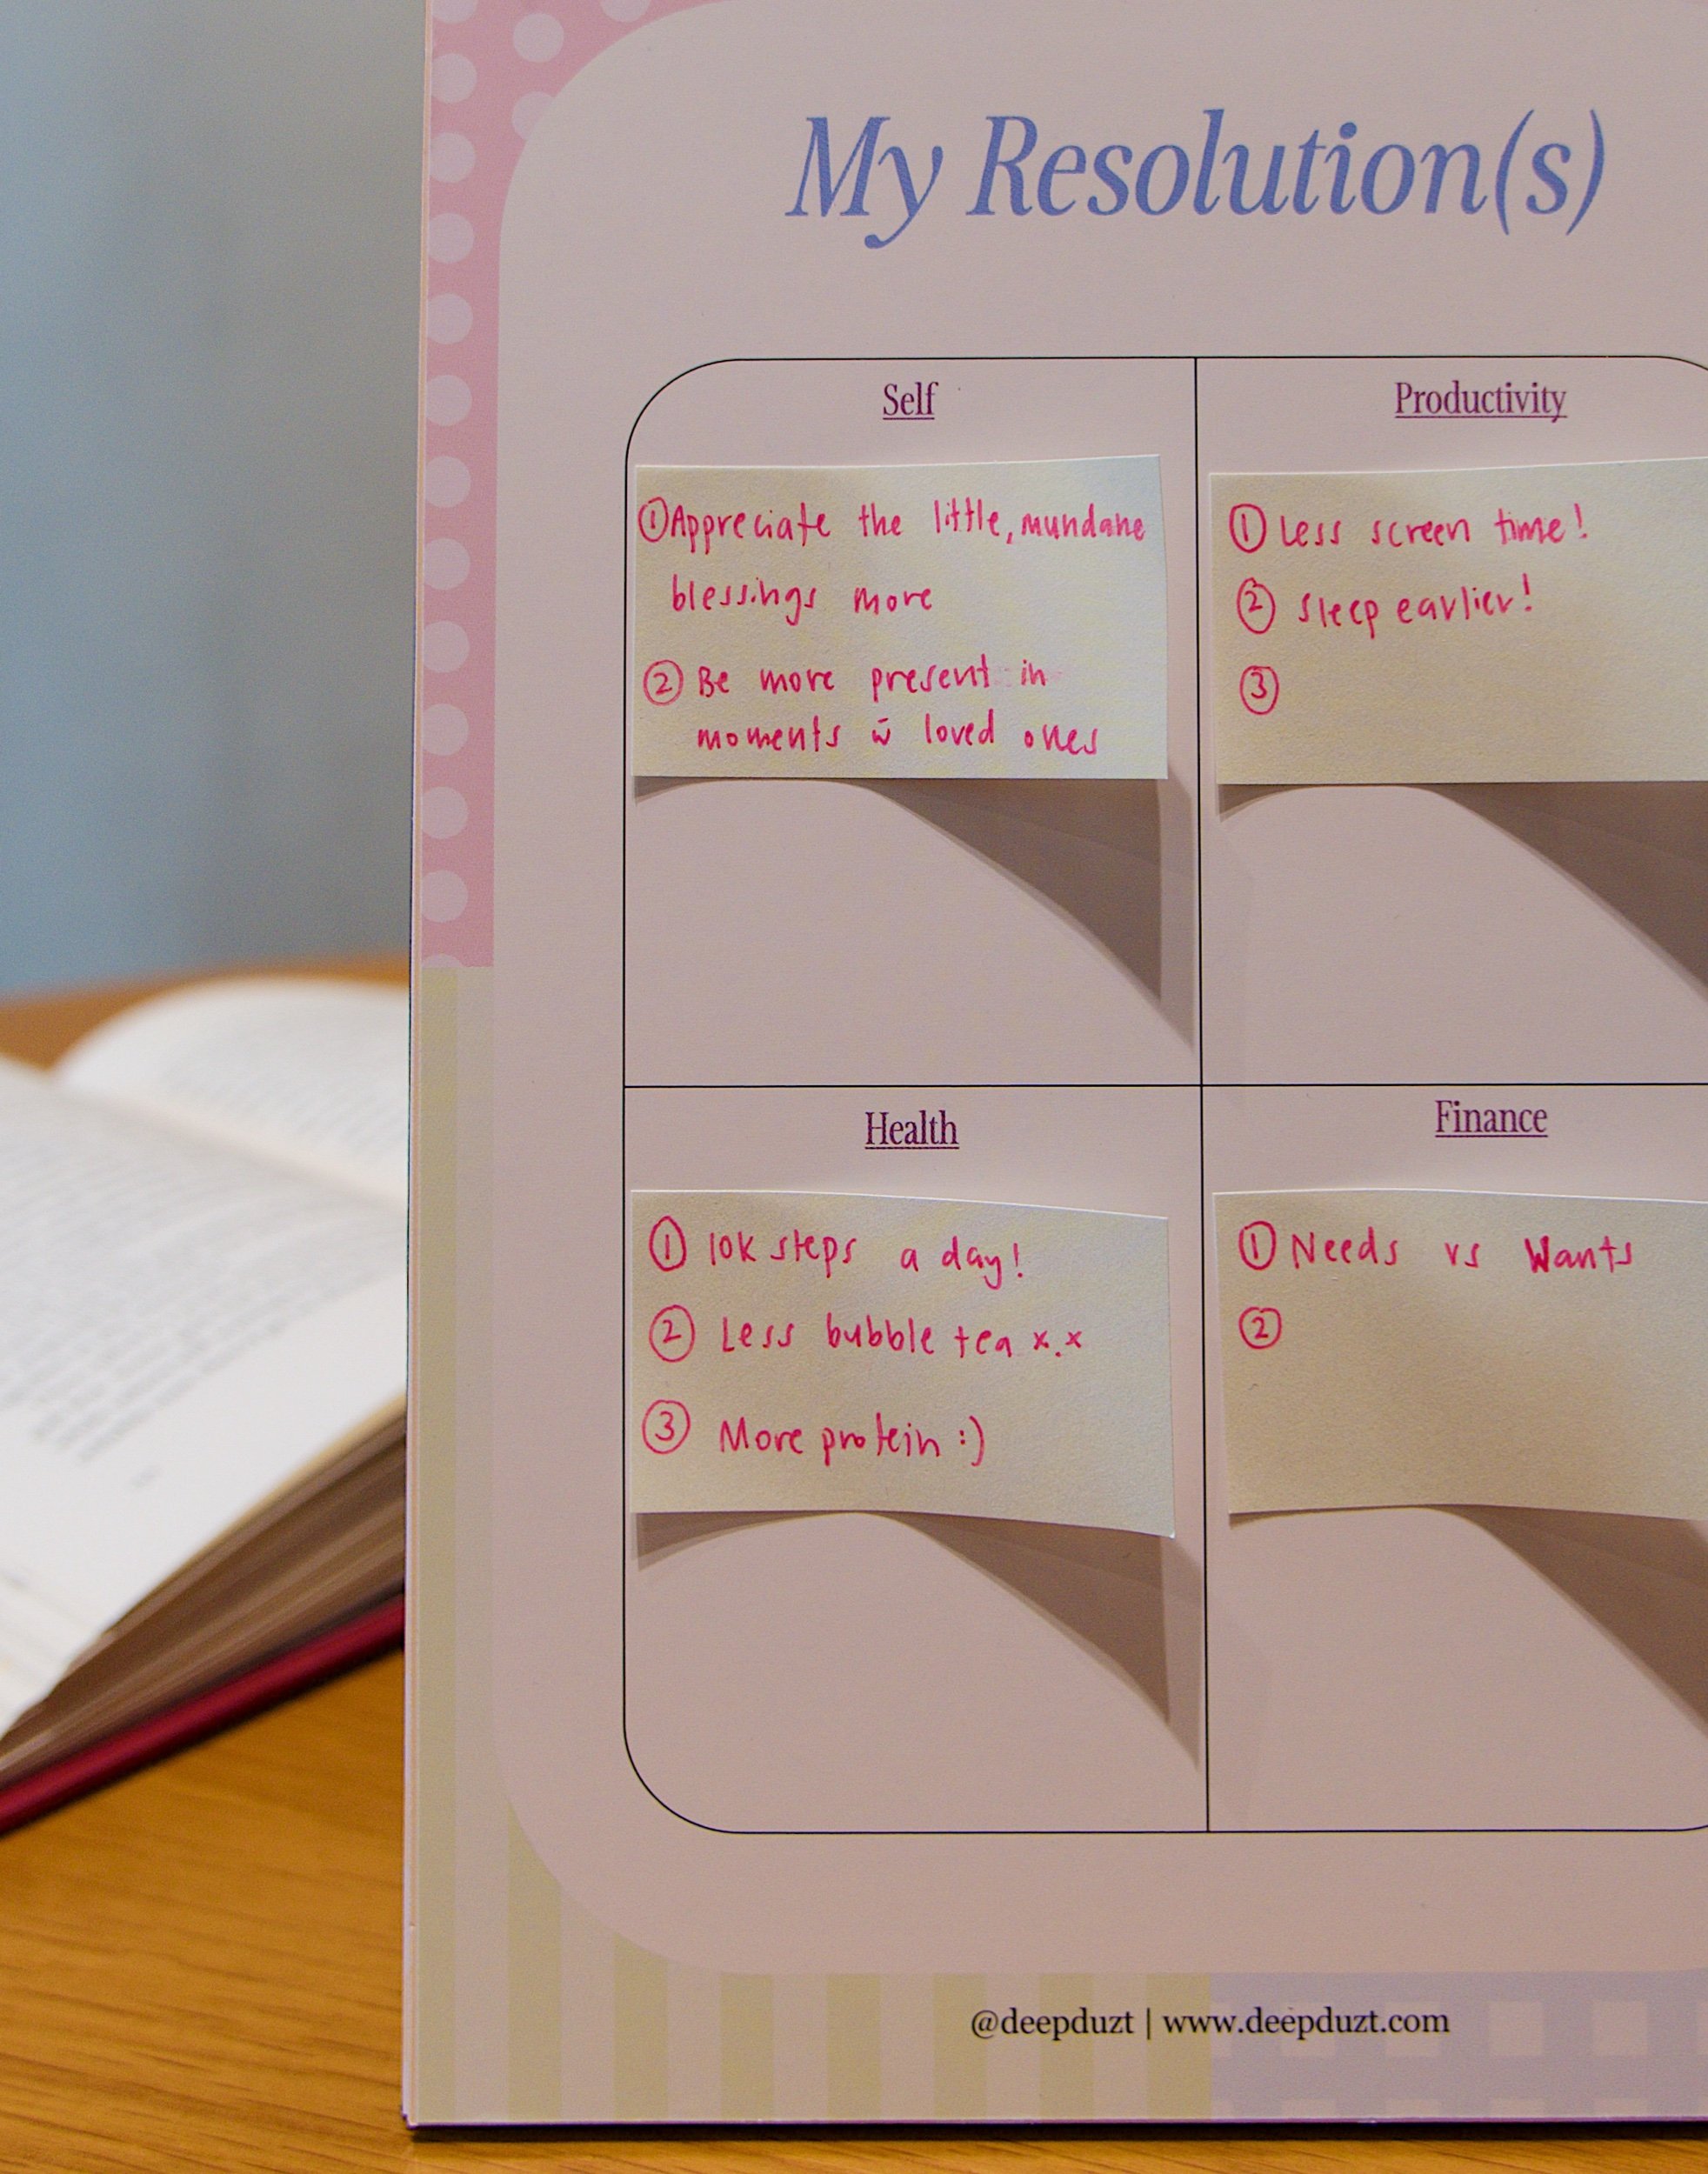 My Resolution(s)
Self
① Appreciate the little, mundane
blessings more
② Be more present in
moments w̄ loved ones
Productivity
① Less screen time!
② Sleep earlier!
③
Health
① 10K steps a day!
② Less bubble tea x.x
③ More protein :)
Finance
① Needs vs Wants
②
@deepduzt | www.deepduzt.com